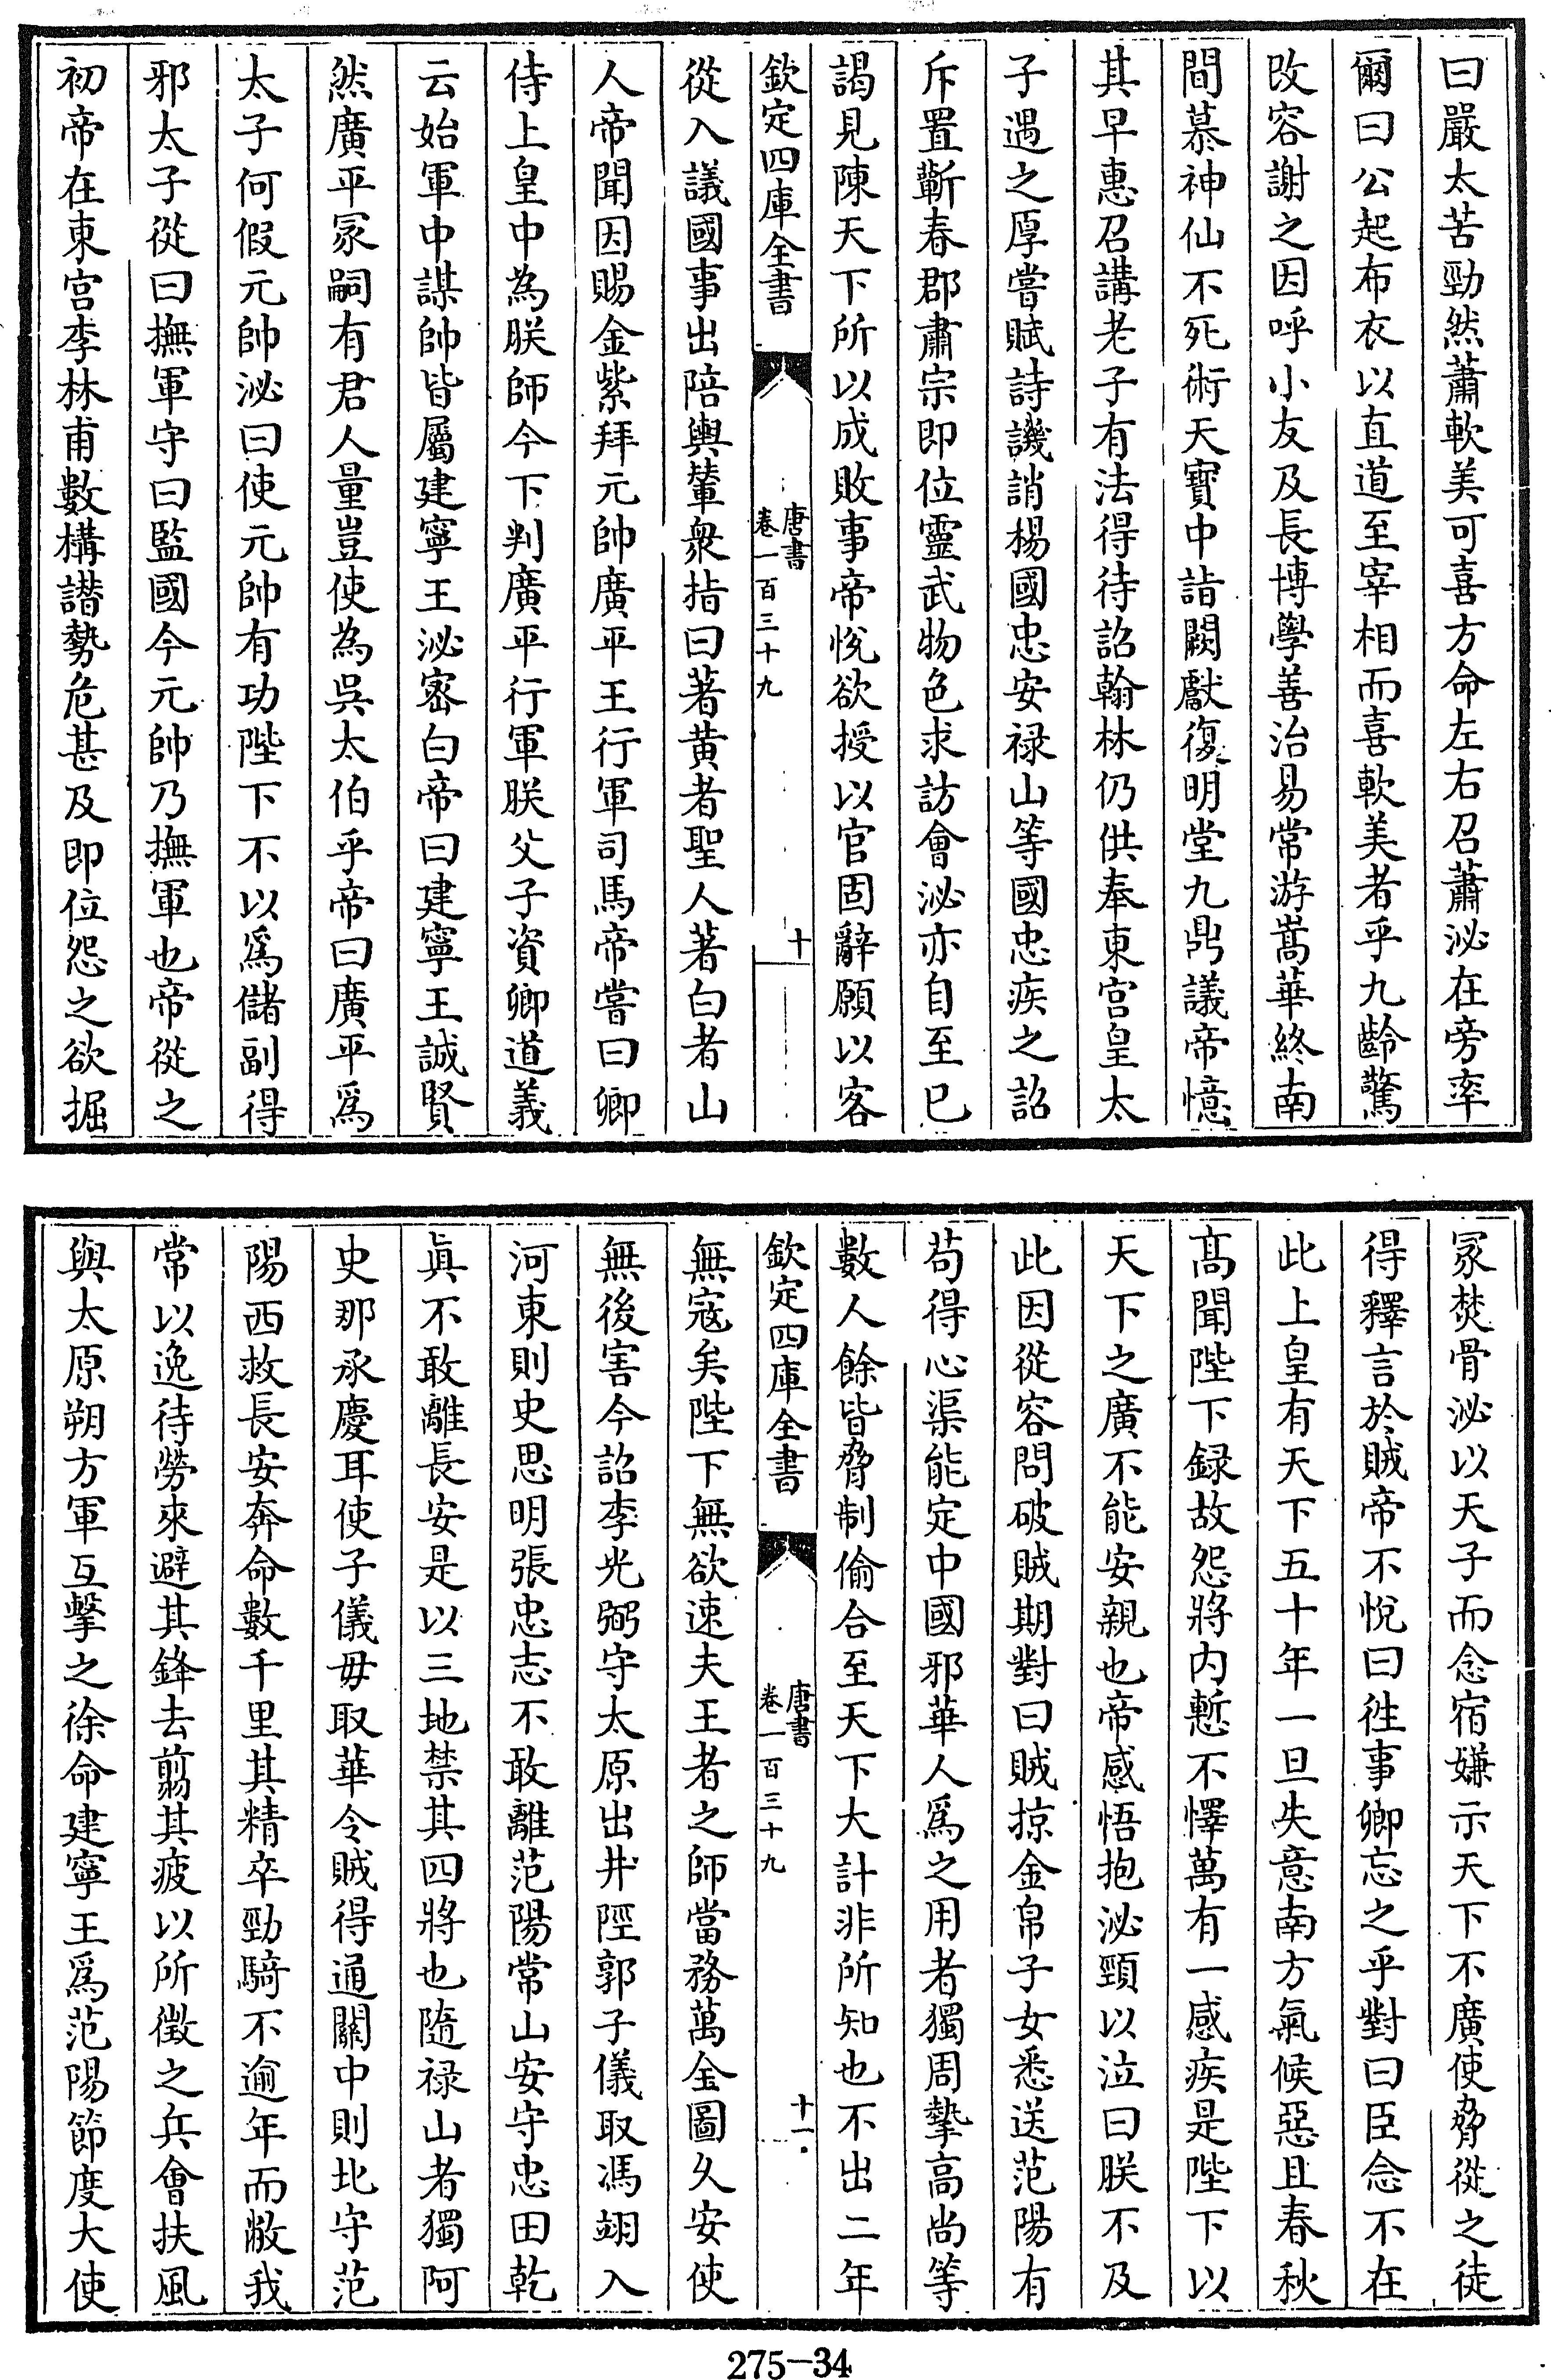 曰嚴太苦勁然蕭軟美可喜方命左右召蕭泌在旁率
爾曰公起布衣以直道至宰相而喜軟美者乎九齡驚
改容謝之因呼小友及長博學善治易常游嵩華終南
間慕神仙不死術天寶中詣闕獻復明堂九鼎議帝憶
其早惠召講老子有法得待詔翰林仍供奉東宫皇太
子遇之厚嘗賦詩譏誚楊國忠安禄山等國忠疾之詔
斥置蘄春郡肅宗即位靈武物色求訪會泌亦自至已
謁見陳天下所以成敗事帝悅欲授以官固辭願以客
欽定四庫全書
唐書
卷一百三十九
十
從入議國事出陪輿輦衆指曰著黄者聖人著白者山
人帝聞因賜金紫拜元帥廣平王行軍司馬帝嘗曰卿
侍上皇中為朕師今下判廣平行軍朕父子資卿道義
云始軍中謀帥皆屬建寧王泌密白帝曰建寧王誠賢
然廣平冢嗣有君人量豈使為吳太伯乎帝曰廣平爲
太子何假元帥泌曰使元帥有功陛下不以爲儲副得
邪太子從曰撫軍守曰監國今元帥乃撫軍也帝從之
初帝在東宫李林甫數構譖勢危甚及即位怨之欲掘
冢焚骨泌以天子而念宿嫌示天下不廣使脅從之徒
得釋言於賊帝不悅曰徃事卿忘之乎對曰臣念不在
此上皇有天下五十年一旦失意南方氣候惡且春秋
髙聞陛下録故怨將内慙不懌萬有一感疾是陛下以
天下之廣不能安親也帝感悟抱泌頸以泣曰朕不及
此因從容問破賊期對曰賊掠金帛子女悉送范陽有
苟得心渠能定中國邪華人爲之用者獨周摯高尚等
數人餘皆脅制偷合至天下大計非所知也不出二年
欽定四庫全書
唐書
卷一百三十九
十一
無寇矣陛下無欲速夫王者之師當務萬全圖久安使
無後害今詔李光弼守太原出井陘郭子儀取馮翊入
河東則史思明張忠志不敢離范陽常山安守忠田乾
眞不敢離長安是以三地禁其四將也隨禄山者獨阿
史那承慶耳使子儀毋取華令賊得通關中則北守范
陽西救長安奔命數千里其精卒勁騎不逾年而敝我
常以逸待勞來避其鋒去翦其疲以所徵之兵會扶風
與太原朔方軍互擊之徐命建寧王爲范陽節度大使
275-34